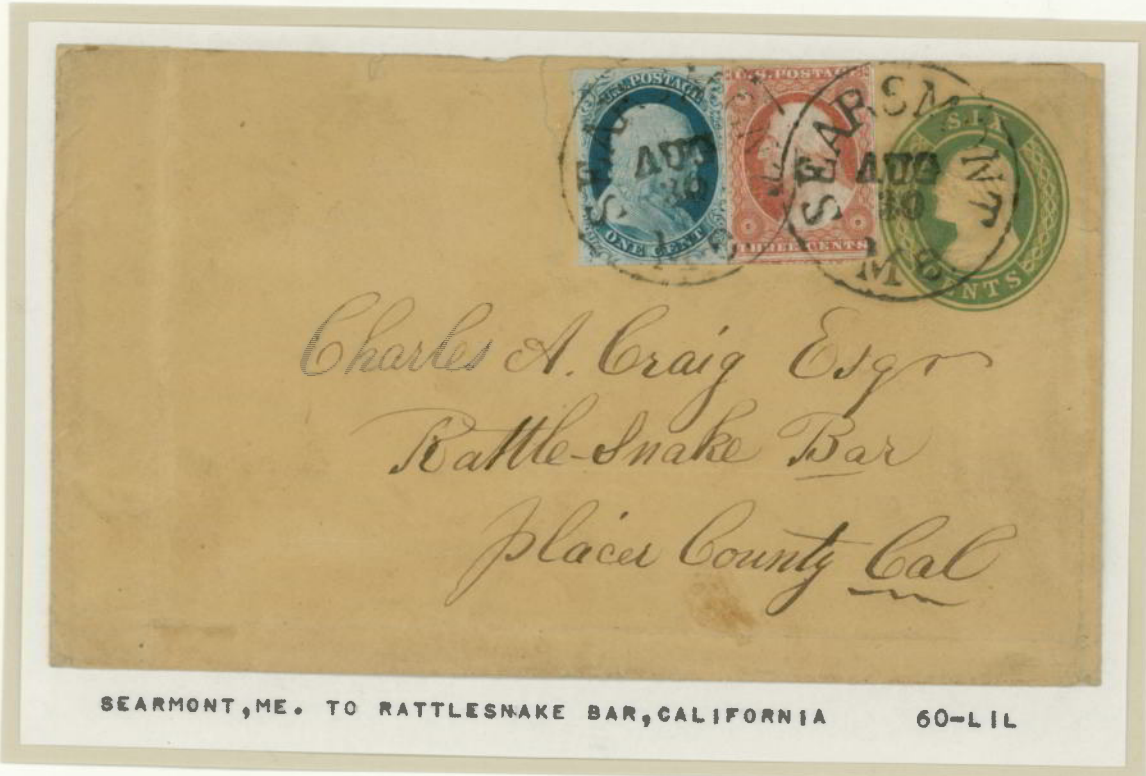 U.S. POSTAGE
ONE CENT
U.S. POSTAGE
THREE CENTS
SEARSMONT
AUG
30
Me
SEARSMONT
AUG
30
Me
SIX
CENTS
Charles A. Craig Esqr
Rattle-Snake Bar
Placer County Cal
SEARMONT,ME. TO RATTLESNAKE BAR,CALIFORNIA 60-LIL